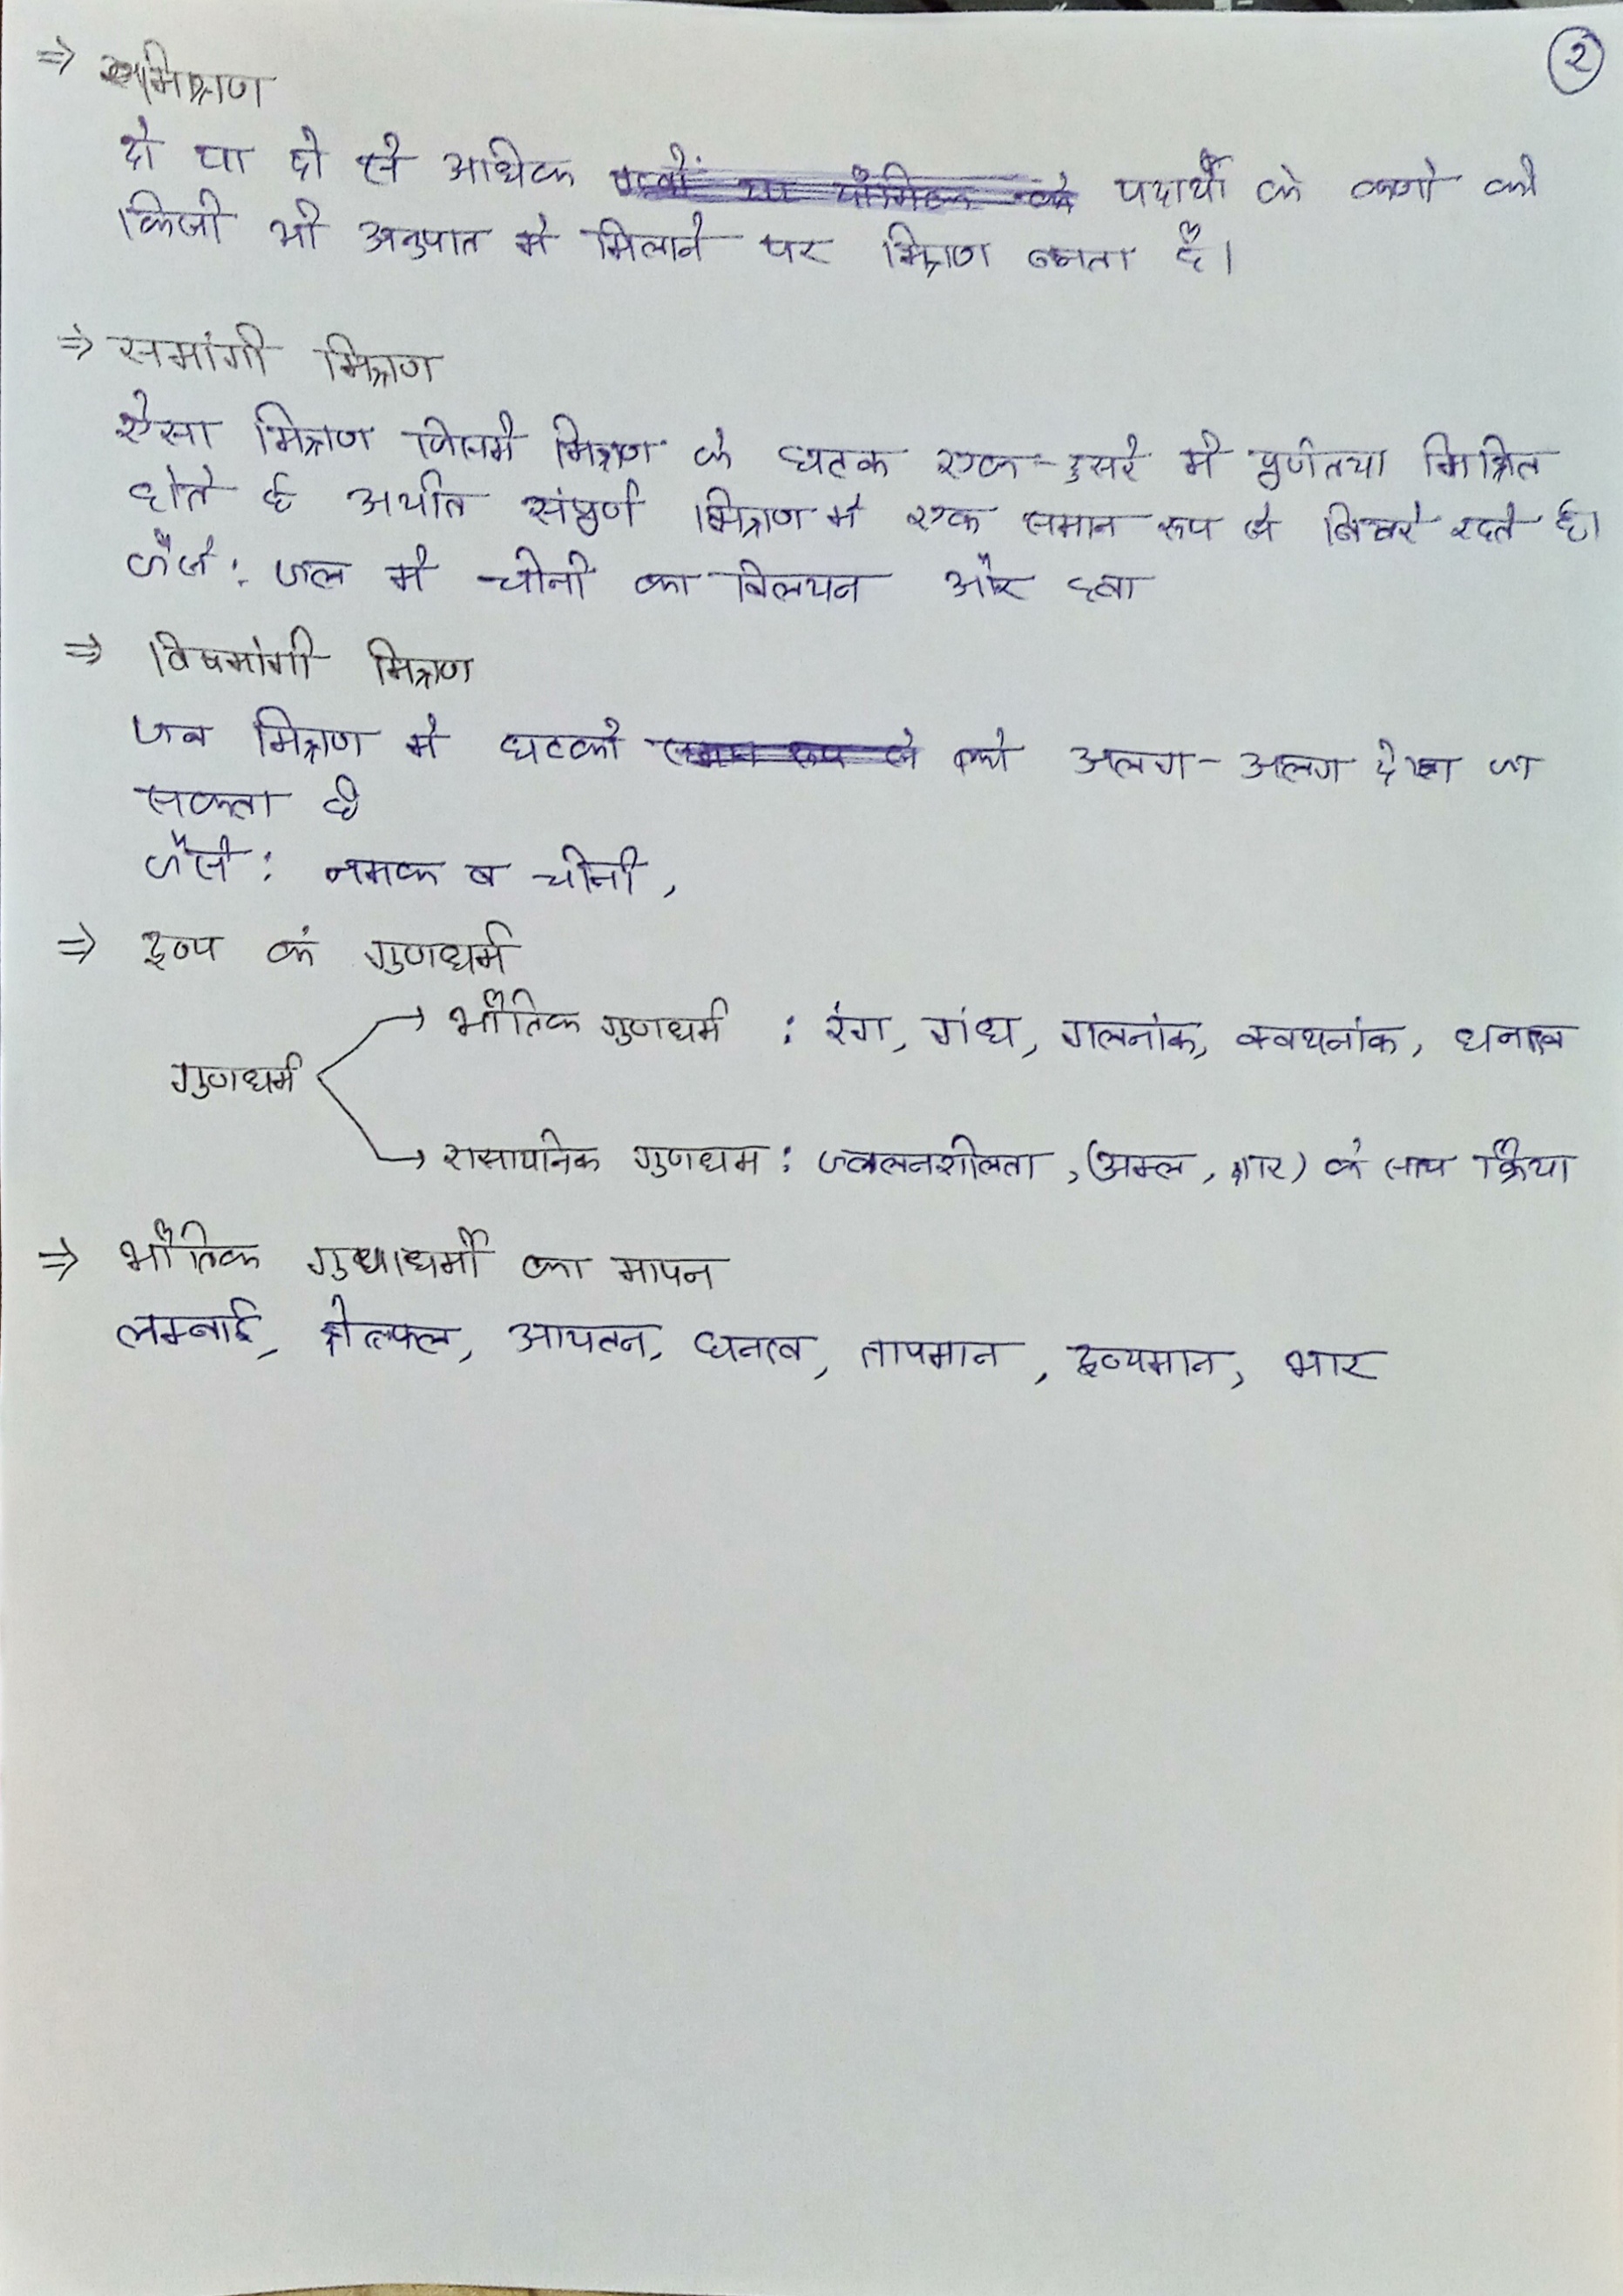 २
⇒ मिश्रण
दो या दो से अधिक पदार्थों के कणों को
किसी भी अनुपात मे मिलाने पर मिश्रण बनता है।
⇒ समांगी मिश्रण
ऐसा मिश्रण जिसमे मिश्रण के घटक एक-दुसरे मे पूर्णतया मिश्रित
होते है अर्थात संपूर्ण मिश्रण मे एक समान रूप से बिखरे रहते है।
जैसे: जल मे चीनी का विलयन और हवा
⇒ विषमांगी मिश्रण
जब मिश्रण मे घटको को अलग-अलग देखा जा
सकता है
जैसे: नमक व चीनी,
⇒ द्रव्य के गुणधर्म
→ भौतिक गुणधर्म : रंग, गंध, गलनांक, क्वथनांक, घनत्व
गुणधर्म
→ रासायनिक गुणधम : ज्वलनशीलता, (अम्ल, क्षार) के साथ क्रिया
⇒ भौतिक गुणधर्मो का मापन
लम्बाई, क्षेत्रफल, आयतन, घनत्व, तापमान, द्रव्यमान, भार